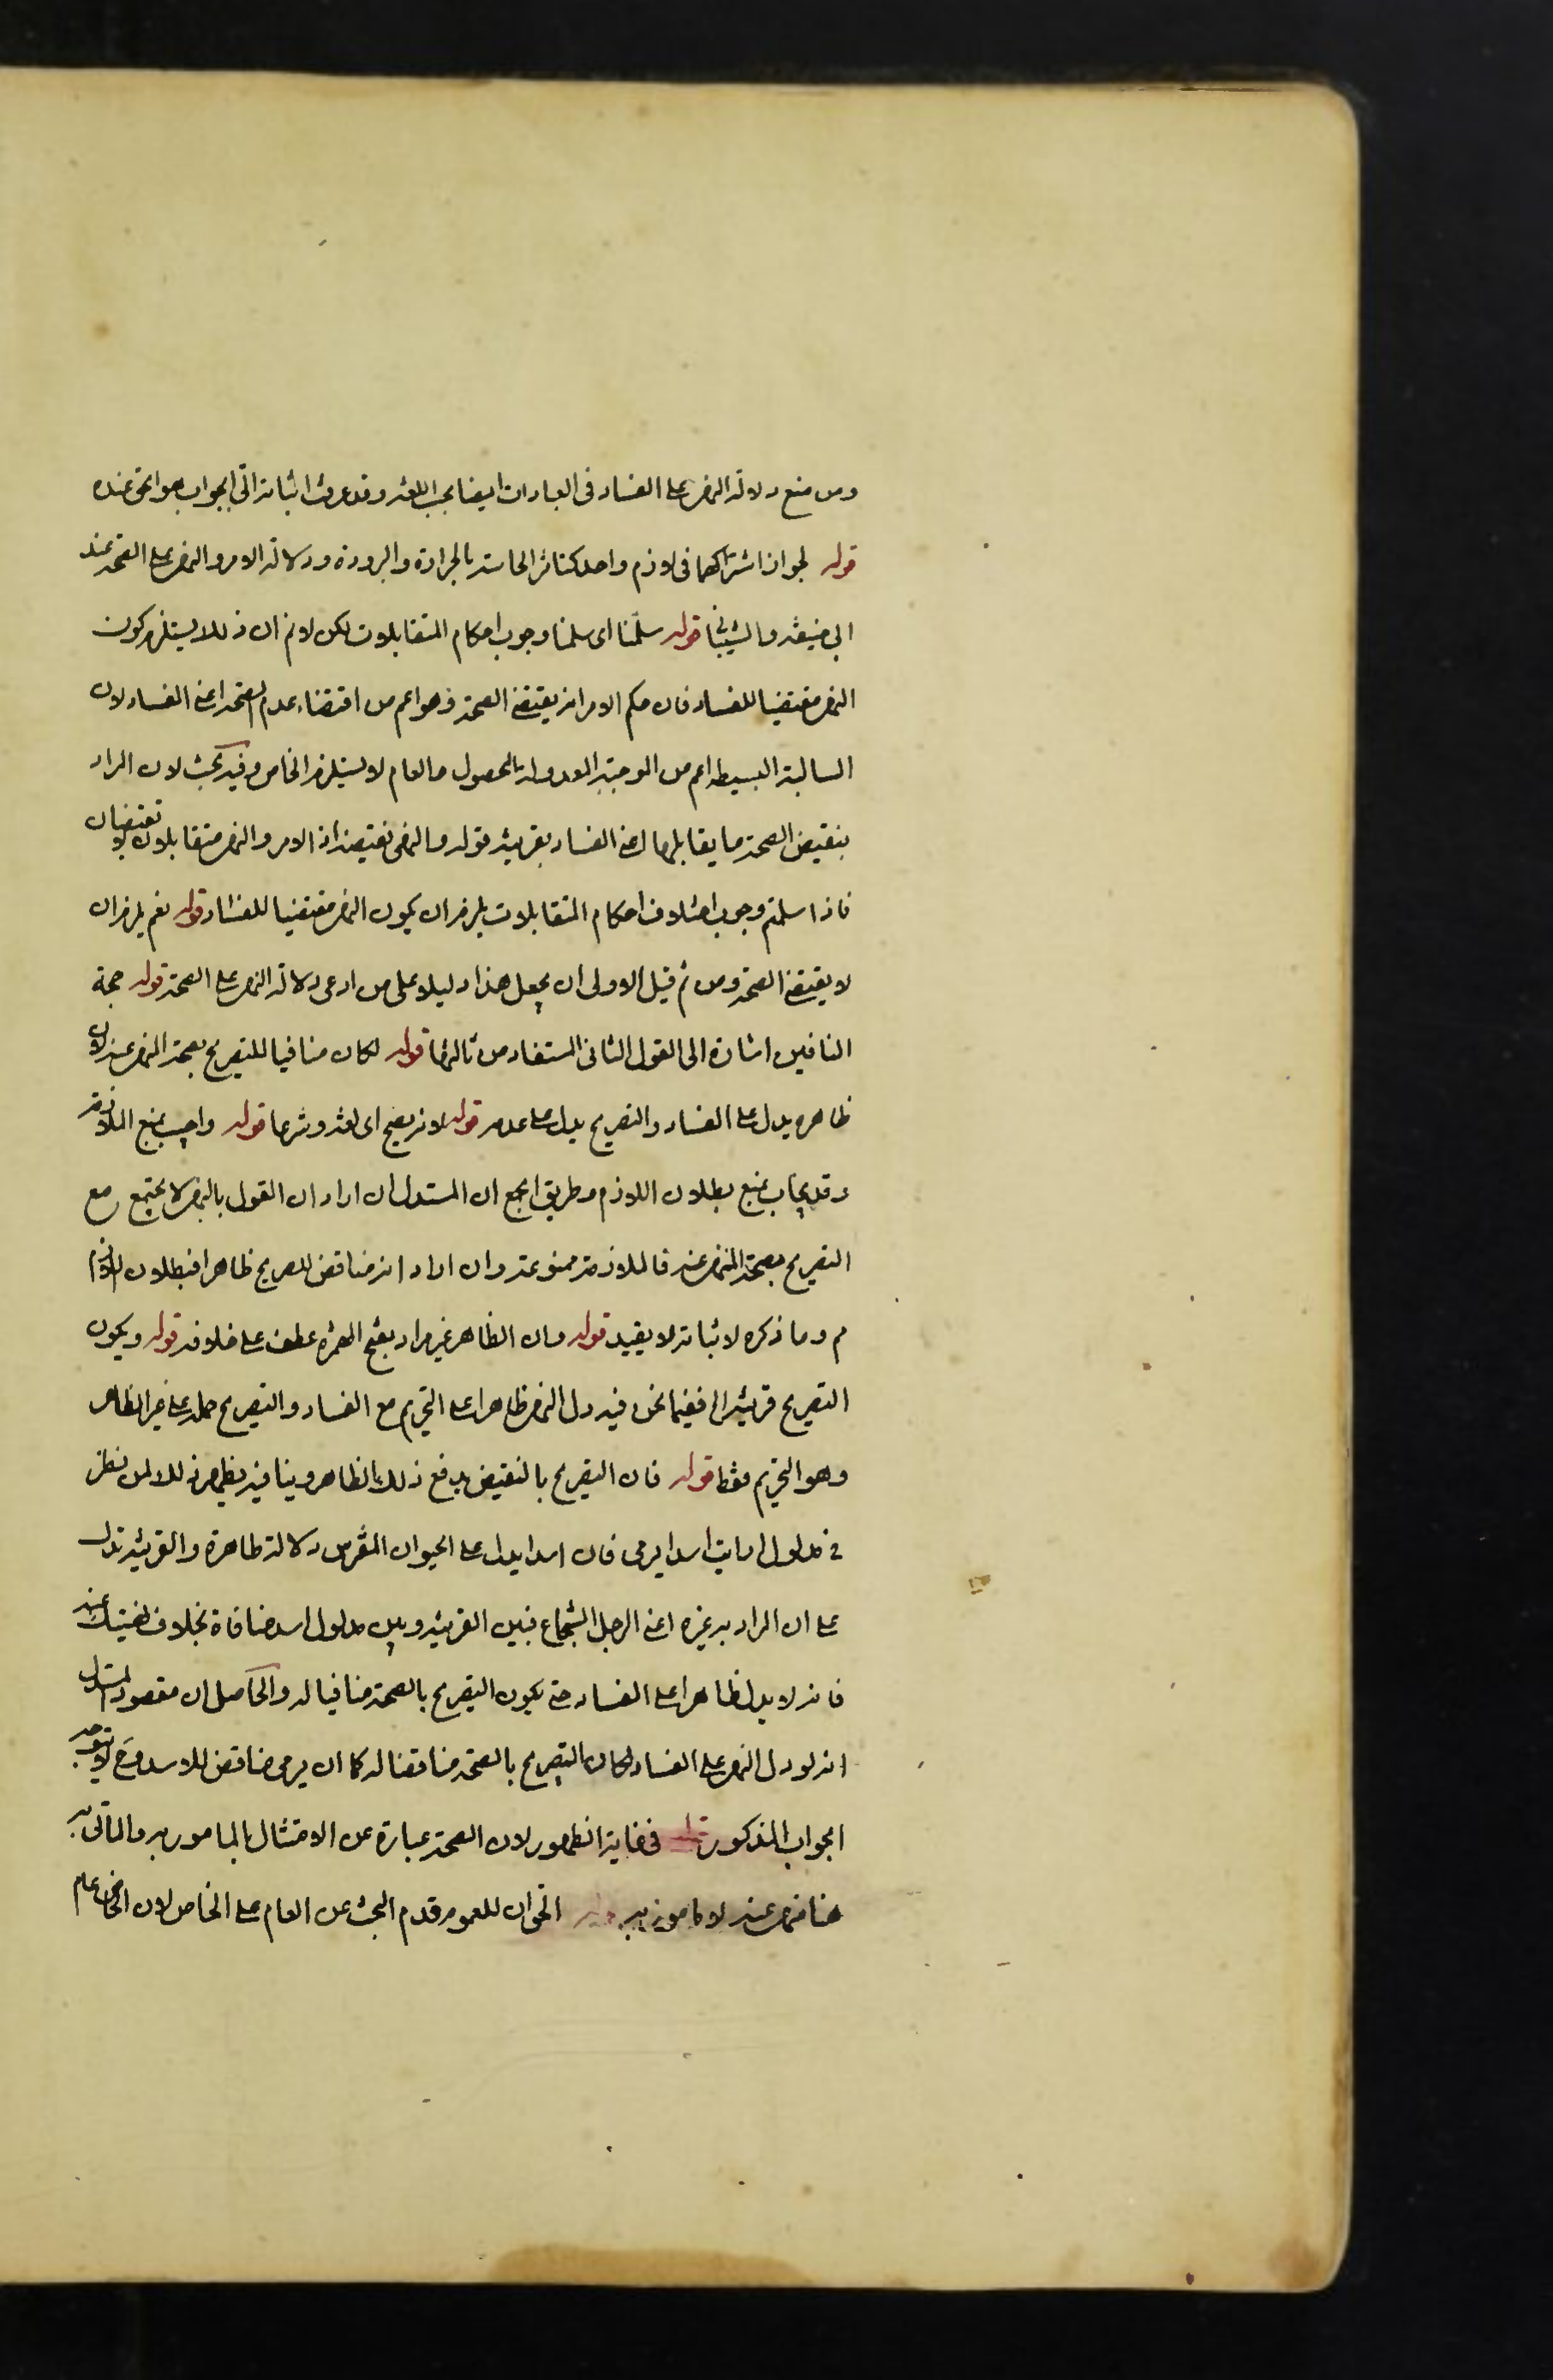 ومن منع دلالة النهى على الفساد فى العبادات ايضا بحسب اللغة وقد عرفت اثباته الى الجواب هو الحق عنده
قوله لجواز اشتراكهما فى لازم واحد كتاثر الحاسة بالحرارة والبرودة ودلالة الامر والنهى على الصحة عند
ابى حنيفة والشيبانى قوله سلمنا اى سلمنا وجوب احكام المتقابلات لكن لانم ان ذلك لا يستلزم كون
النهى مقتضيا للفساد فان حكم الامر انه يقتضى الصحة وهو اعم من اقتضاء عدم الصحة اعنى الفساد لان
السالبة البسيطة اعم من الموجبة المعدولة المحصول والعام لا يستلزم الخاص وفيه بحث لان المراد
بنقيض الصحة ما يقابلها اعنى الفساد بقرينة قوله والنهى نقيضه اذ الامر والنهى متقابلان لا نقيضان
فاذا سلمتم وجوب اختلاف احكام المتقابلات يلزم ان يكون النهى مقتضيا للفساد قوله نعم يلزم ان
لا يقتضى الصحة ومن ثم قيل الاولى ان يجعل هذا دليلا على من ادعى دلالة النهى على الصحة قوله حجة
النافين اشارة الى القول الثانى المستفاد من ثالثها قوله لكان منافيا للتصريح بصحة النهى عنه لان
ظاهره يدل على الفساد والتصريح يدل على عدمه قوله لانه يصح اى لغة وشرعا قوله واجيب بمنع الملازمة
وقد يجاب بمنع بطلان اللازم وطريق الجمع ان المستدل ان اراد ان القول بالنهى لا يجتمع مع
التصريح بصحة المنهى عنه فالملازمة ممنوعة وان اراد انه مناقض للصريح ظاهرا فبطلان اللازم
م وما ذكره لاثباته لا يفيد قوله وان الظاهر غير مراد بفتح الهمزة عطف على خلافه قوله ويكون
التصريح قرينة الخ ففيما نحن فيه دل النهى ظاهرا على التحريم مع الفساد والتصريح حمله على غير الظاهر
وهو التحريم فقط قوله فان التصريح بالنقيض يدفع ذلك الظاهر وينافيه يظهر ذلك لمن نظر
فى مدلول رايت اسدا يرمى فان اسدا يدل على الحيوان المفترس دلالة ظاهرة والقرينة تدل
على ان المراد به غيره اعنى الرجل الشجاع فبين القرينة وبين مدلول اسد منافاة بخلاف نهيتك عنه
فانه لا يدل ظاهرا على الفساد حتى يكون التصريح بالصحة منافيا له والحاصل ان مقصود المستدل
انه لو دل النهى على الفساد لكان التصريح بالصحة مناقضا له كما ان يرمى مناقض للاسد ومع لا يتوجه
الجواب المذكور قوله فى غاية الظهور لان الصحة عبارة عن الامتثال بالمامور به والماتى به
هنا منهى عنه لا مامور به الحق ان للعموم قدم البحث عن العام على الخاص لان الخاص عام